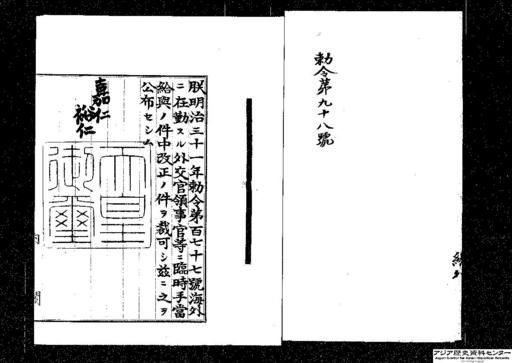 勅令第九十八號
朕明治三十一年勅令第百七十七號海外
ニ在勤スル外交官領事官等ニ臨時手當
給與ノ件中改正ノ件ヲ裁可シ茲ニ之ヲ
公布セシム
嘉仁
裕仁
天皇御璽
内閣
アジア歴史資料センター
Japan Center for Asian Historical Records